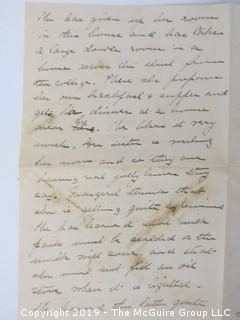 She has given up her rooms
in this house and has taken
a large double room in a
house across the street from
the college. There she prepares
her own breakfast & supper and
gets her dinner at a house
near. She likes it very
much. Her sister is making
her room and so they are
having real jolly times they
say. Margaret thinks that
she is getting quite
She has learned that milk
must be scalded or the
milk will sour, and that
she must not fill an oil
stove when it is lighted.
Copyright 2019 - The McGuire Group LLC